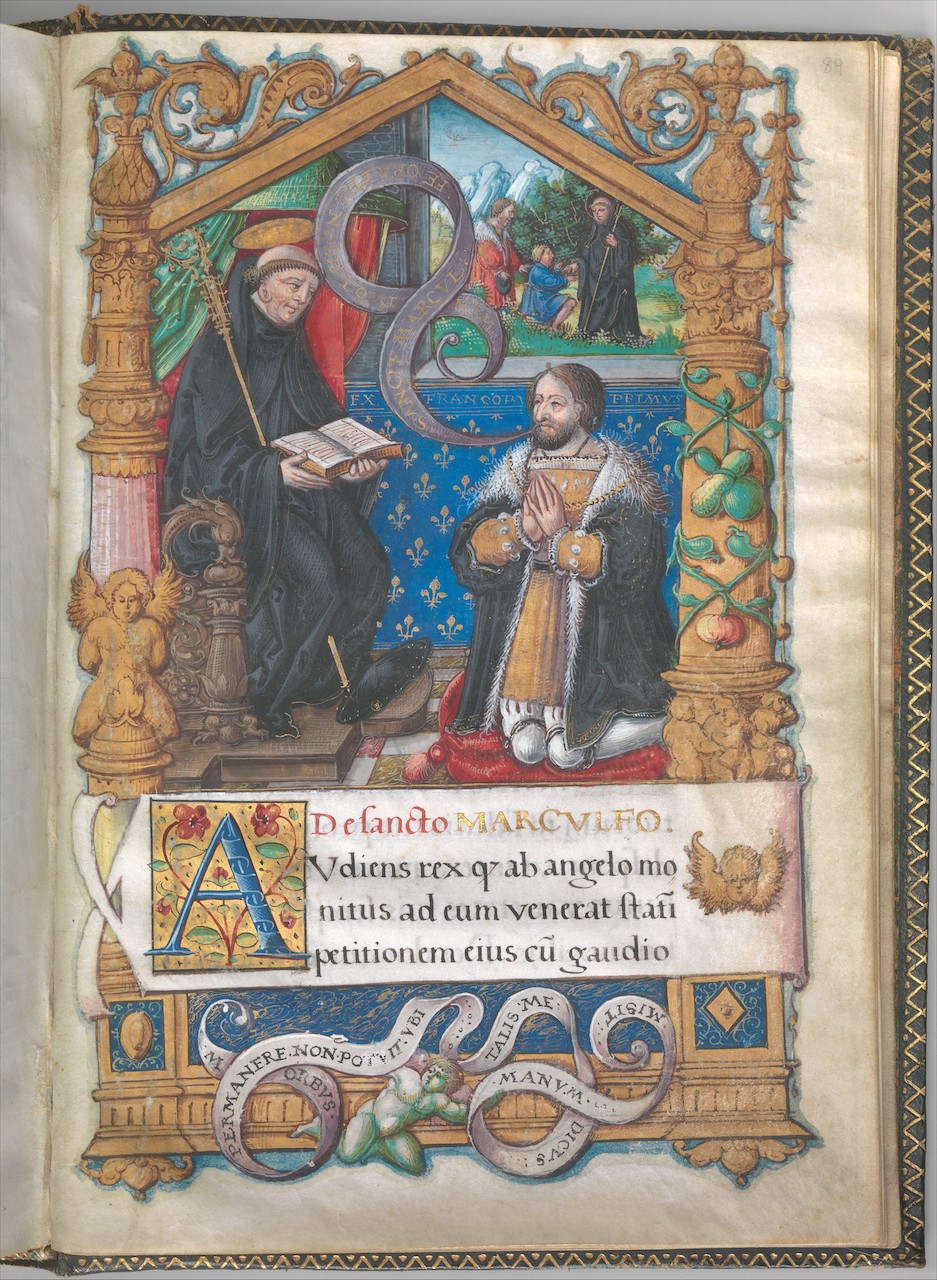 89
SANCTE MARCVL
FE ORA
EX FRANCORV PRIMVS
De sancto MARCVLFO.
AVdiens rex qꝫ ab angelo mo
nitus ad eum venerat ſtatĩ
petitionem eius cũ gaudio
M ORBVS.
PERMANERE.NON.POTVIT.VBI
TALIS.ME
DICVS
MANVM.
MISIT